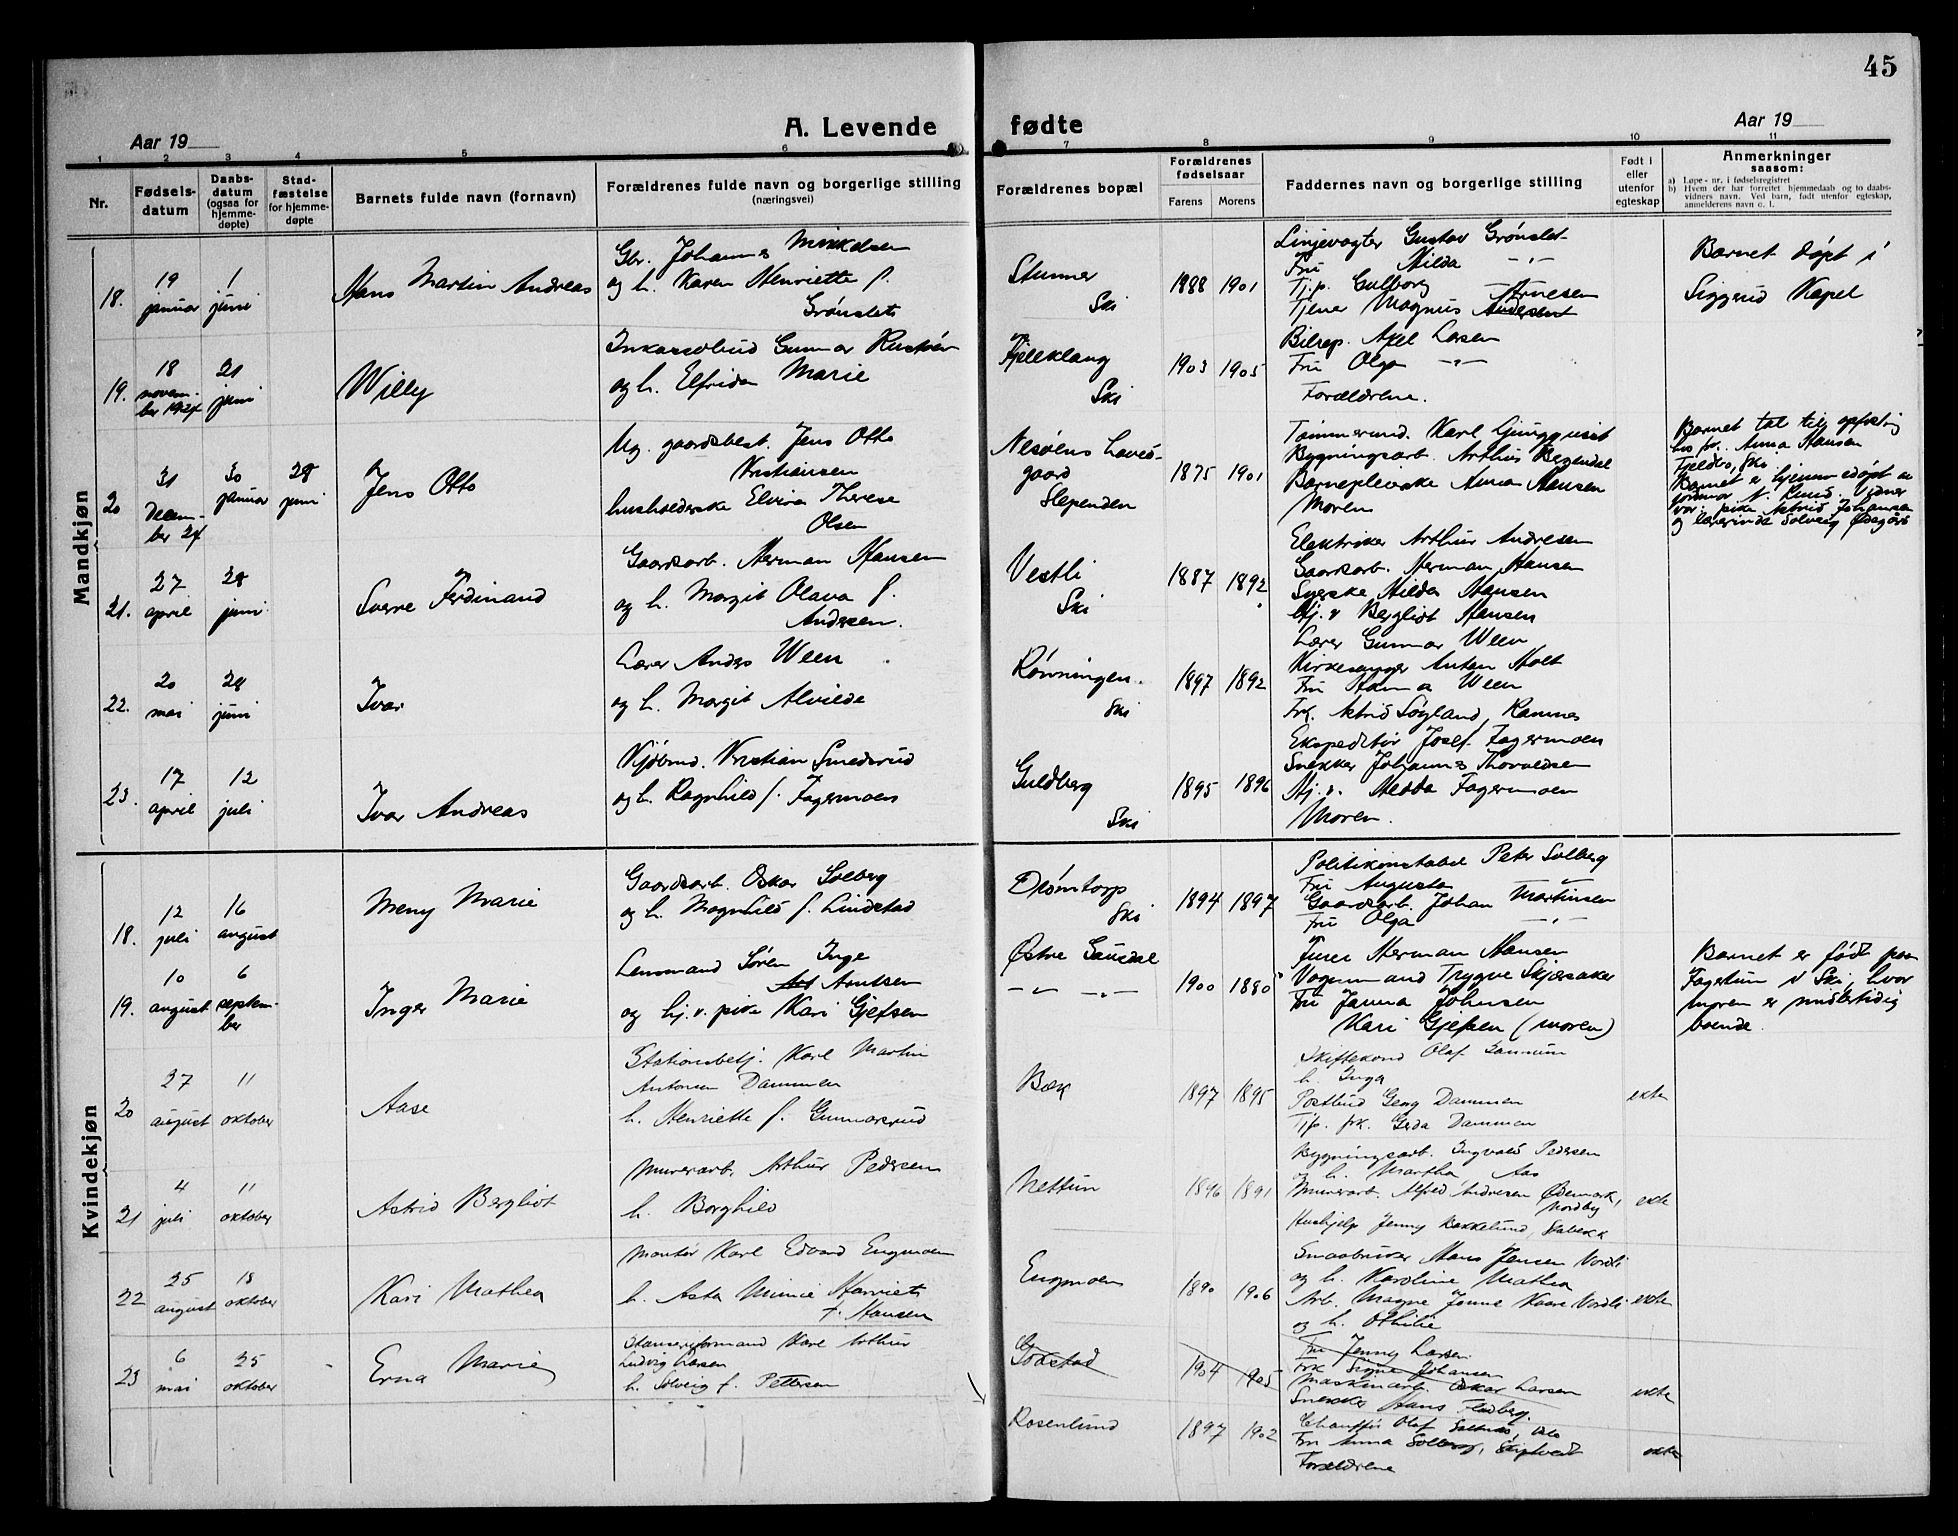 45
A. Levende fødte
Aar 19
Aar 19
1 2 3 4 5 6 7 8 9 10 11
Nr.
Fødsels-
datum
Daabs-
datum
(ogsaa for
hjemme-
døpte)
Stad-
fæstelse
for hjemme-
døpte
Barnets fulde navn (fornavn)
Forældrenes fulde navn og borgerlige stilling
(næringsvei)
Forældrenes bopæl
Forældrenes
fødselsaar
Farens Morens
Faddernes navn og borgerlige stilling
Født i
eller
utenfor
egteskap
Anmerkninger
saasom:
a) Løpe-nr. i fødselsregistret
b) Hvem der har forrettet hjemmedaab og to daabs-
vidners navn. Ved barn, født utenfor egteskap,
anmelderens navn o. l.
Mandkjøn
18.
19
januar
1
juni
Hans Martin Andreas
Gbr. Johannes Mikkelsen
og h. Karen Henriette f.
Grønslet
Stunner
Ski
1888 1901
Linjevogter Gustav Grønslet
Fru Hilda -"-
Tj.p. Gulborg
Tjener Magnus Arnesen
Barnet døpt i
Siggerud Kapel
19.
18
novem-
ber 1924
21
juni
Willy
Inkassobud Gunnar
og h. Elfrida Marie
Ski
1903 1905
Bilrep. Axel Larsen
Fru Olga -"-
Forældrene.
20
31
Decem-
ber 24
30
januar
28
juni
Jens Otto
Ug. gaardsbest. Jens Otto
Kristiansen
husholderske Elvira Therese
Olsen
Nesøens Hoved-
gaard
Slependen
1875 1901
Tømmermd. Karl Ljungquist
Bygningsarb. Arthur Bergendal
Barnepleierske Anna Hansen
Moren
Barnet tat til opfostring
hos fr. Anna Hansen
Fjeldbo, Ski.
Barnet er hjemmedøpt av
jormor N. Lund. Vidner
var: pike Astrid Johansen
og lærerinde Solveig Ødegård
21.
27
april
28
juni
Sverre Ferdinand
Gaardsarb. Herman Hansen
og h. Margit Olava f.
Andresen.
Vestli
Ski
1887 1892
Elektriker Arthur Andresen
Gaardsarb. Herman Hansen
Syerske Hilda Hansen
Hj. v Bergliot Hansen
22.
20
mai
28
juni
Ivar
Lærer Anders Ween
og h. Margit Alvilde
Rønningen.
Ski
1897 1892
Lærer Gunnar Ween
Kirkesanger Anton Holt
Fru Hanna Ween
Frk. Astrid Søgland, Kamnes
23.
17
april
12
juli
Ivar Andreas
Kjøbmd. Kristian Smedsrud
og h. Ragnhild f. Fagermoen
Guldberg
Ski
1895 1896
Ekspeditør Josef Fagermoen
Snekker Johannes Thorvaldsen
Hj. v. Hedda Fagermoen
Moren.
Kvindekjøn
18.
12
juli
16
august
Meny Marie
Gaardsarb. Oskar Solberg
og h. Magnhild f. Lindstad
Drømtorp
Ski
1894 1897
Politikonstabel Peter Solberg
Fru Augusta -"-
Gaardsarb. Johan Martinsen
Fru Olga -"-
19.
10
august
6
septem-
ber
Inger Marie
Lensmand Søren Inge
Arntsen
og hj. v. pike Kari Gjefsen
Østre Gausdal
-"- -"-
1900 1880
Furer Herman Hansen
Vognmand Trygve Skjæraker
Fru Janna Johnsen
Kari Gjefsen (moren)
Barnet er født paa
Fagertun v Ski, hvor
moren er midlertidig
boende.
20
27
august
11
oktober
Aase
Stationsbetj. Karl Martin
Antonsen Dammen
h. Henriette f. Gunnarsrud
Bæk
1897 1895
Skiftekond Olaf
h. Inga
Postbud Georg Dammen
Tjp. frk. Gerda Dammen
ekte
21
4
juli
11
oktober
Astrid Bergliot
Murerarb. Arthur Pedersen
h. Borghild
Nettun
1896 1891
Bygningsarb. Ingvald Pedersen
h. Martha Aas
Murerarb. Alfred Andresen Ødemark,
Nordby
Hushjelp Jenny Bakkelund, Stabekk
ekte
22
25
august
18
oktober
Kari Mathea
Montør Karl Edvard Engmoen
h. Asta Minnie Harriet
f. Hansen
Engmoen
1890 1906
Smaabruker Hans Jensen Vordli
og h. Karoline Mathea
Arb. Magne Kaare Vordli
og h. Othilie
ekte
23
6
mai
25
oktober
Erna Marie
Stanseriformand Karl Arthur
Ludvig Larsen
h. Solveig f. Pettersen
Godstad
1904 1905
Fru Jenny Larsen
Frk Signe Johansen
Maskinarb. Oskar Larsen
Snekker Hans Fladberg.
ekte
Rosenlund
1897 1902
Chauffør Olaf Solberg, Oslo
Fru Anna Solberg, Skiptvedt
Forældrene
ekte